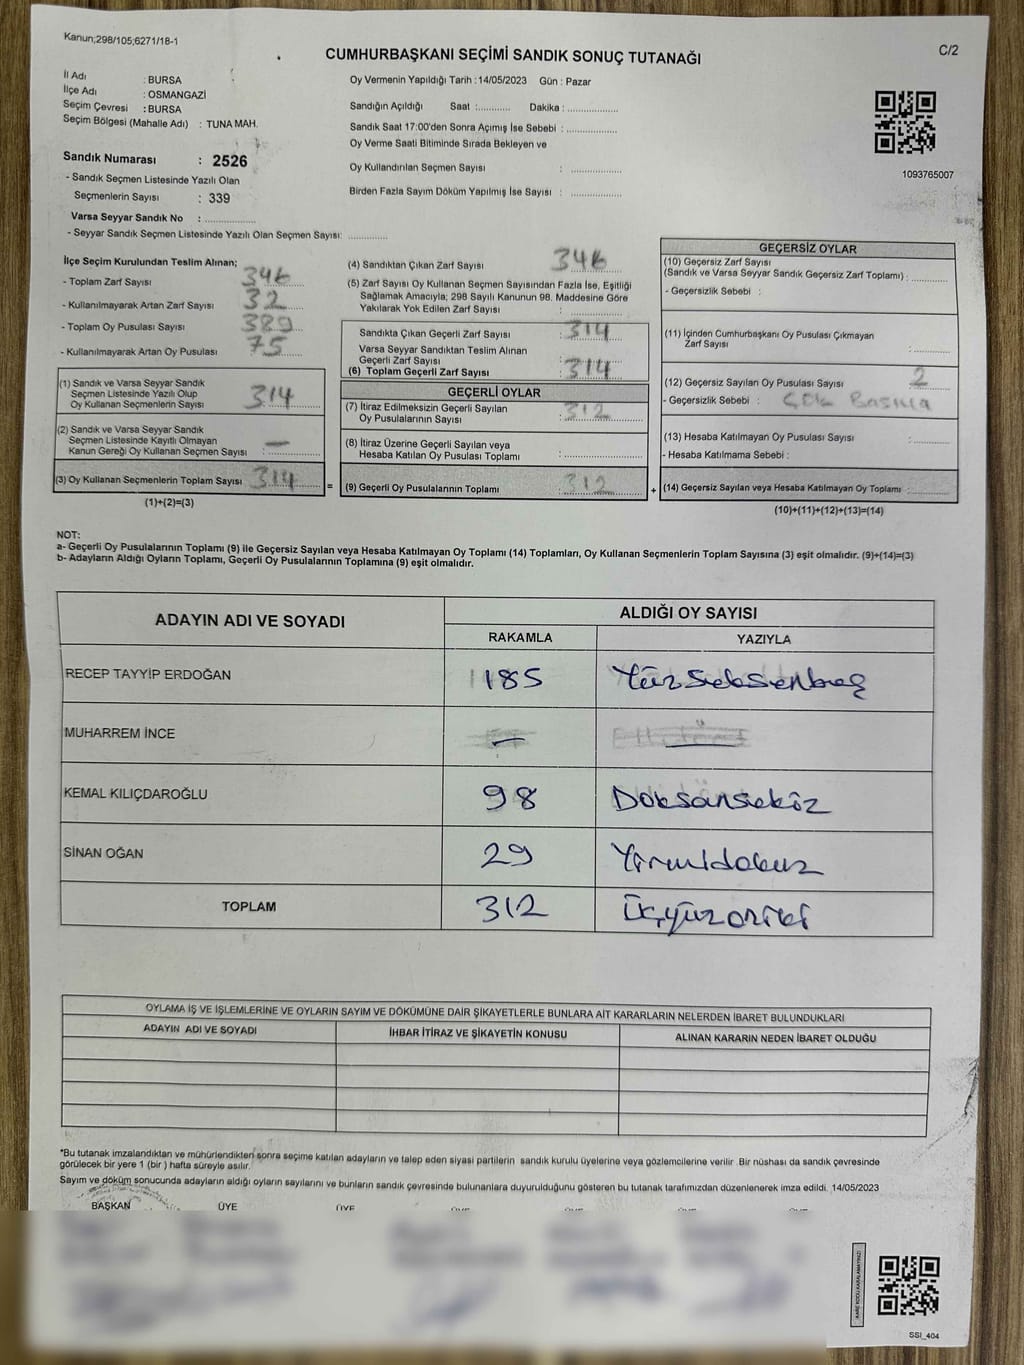 Kanun;298/105;6271/18-1
CUMHURBAŞKANI SEÇİMİ SANDIK SONUÇ TUTANAĞI
C/2
İl Adı : BURSA
İlçe Adı : OSMANGAZİ
Seçim Çevresi : BURSA
Seçim Bölgesi (Mahalle Adı) : TUNA MAH.
Sandık Numarası : 2526
- Sandık Seçmen Listesinde Yazılı Olan
Seçmenlerin Sayısı : 339
Varsa Seyyar Sandık No : ..............
- Seyyar Sandık Seçmen Listesinde Yazılı Olan Seçmen Sayısı: ............
Oy Vermenin Yapıldığı Tarih :14/05/2023 Gün : Pazar
Sandığın Açıldığı Saat :.......... Dakika : ................
Sandık Saat 17:00'den Sonra Açımış İse Sebebi : ................
Oy Verme Saati Bitiminde Sırada Bekleyen ve
Oy Kullandırılan Seçmen Sayısı : ................
Birden Fazla Sayım Döküm Yapılmış İse Sayısı : ................
1093765007
İlçe Seçim Kurulundan Teslim Alınan;
- Toplam Zarf Sayısı : 346
- Kullanılmayarak Artan Zarf Sayısı : 32
- Toplam Oy Pusulası Sayısı : 389
- Kullanılmayarak Artan Oy Pusulası : 75
(1) Sandık ve Varsa Seyyar Sandık
Seçmen Listesinde Yazılı Olup
Oy Kullanan Seçmenlerin Sayısı : 314
(2) Sandık ve Varsa Seyyar Sandık
Seçmen Listesinde Kayıtlı Olmayan
Kanun Gereği Oy Kullanan Seçmen Sayısı : —
(3) Oy Kullanan Seçmenlerin Toplam Sayısı : 314
(1)+(2)=(3)
(4) Sandıktan Çıkan Zarf Sayısı : 346
(5) Zarf Sayısı Oy Kullanan Seçmen Sayısından Fazla İse, Eşitliği
Sağlamak Amacıyla; 298 Sayılı Kanunun 98. Maddesine Göre
Yakılarak Yok Edilen Zarf Sayısı : ................
Sandıkta Çıkan Geçerli Zarf Sayısı : 314
Varsa Seyyar Sandıktan Teslim Alınan
Geçerli Zarf Sayısı :
(6) Toplam Geçerli Zarf Sayısı : 314
GEÇERLİ OYLAR
(7) İtiraz Edilmeksizin Geçerli Sayılan
Oy Pusulalarının Sayısı : 312
(8) İtiraz Üzerine Geçerli Sayılan veya
Hesaba Katılan Oy Pusulaları Toplamı : ................
= (9) Geçerli Oy Pusulalarının Toplamı : 312 +
GEÇERSİZ OYLAR
(10) Geçersiz Zarf Sayısı
(Sandık ve Varsa Seyyar Sandık Geçersiz Zarf Toplamı) : ..........
- Geçersizlik Sebebi :
(11) İçinden Cumhurbaşkanı Oy Pusulası Çıkmayan
Zarf Sayısı : ..........
(12) Geçersiz Sayılan Oy Pusulası Sayısı : 2
- Geçersizlik Sebebi : Çok Basma
(13) Hesaba Katılmayan Oy Pusulası Sayısı : ..........
- Hesaba Katılmama Sebebi :
(14) Geçersiz Sayılan veya Hesaba Katılmayan Oy Toplamı : ..........
(10)+(11)+(12)+(13)=(14)
NOT:
a- Geçerli Oy Pusulalarının Toplamı (9) ile Geçersiz Sayılan veya Hesaba Katılmayan Oy Toplamı (14) Toplamları, Oy Kullanan Seçmenlerin Toplam Sayısına (3) eşit olmalıdır. (9)+(14)=(3)
b- Adayların Aldığı Oyların Toplamı, Geçerli Oy Pusulalarının Toplamına (9) eşit olmalıdır.
ADAYIN ADI VE SOYADI ALDIĞI OY SAYISI
RAKAMLA YAZIYLA
RECEP TAYYİP ERDOĞAN 185 Yüzseksenbeş
MUHARREM İNCE —
KEMAL KILIÇDAROĞLU 98 Doksansekiz
SİNAN OĞAN 29 Yirmidokuz
TOPLAM 312 Üçyüzoniki
OYLAMA İŞ VE İŞLEMLERİNE VE OYLARIN SAYIM VE DÖKÜMÜNE DAİR ŞİKAYETLERLE BUNLARA AİT KARARLARIN NELERDEN İBARET BULUNDUKLARI
ADAYIN ADI VE SOYADI İHBAR İTİRAZ VE ŞİKAYETİN KONUSU ALINAN KARARIN NEDEN İBARET OLDUĞU
*Bu tutanak imzalandıktan ve mühürlendikten sonra seçime katılan adayların ve talep eden siyasi partilerin sandık kurulu üyelerine veya gözlemcilerine verilir. Bir nüshası da sandık çevresinde
görülecek bir yere 1 (bir ) hafta süreyle asılır.
Sayım ve döküm sonucunda adayların aldığı oyların sayılarını ve bunların sandık çevresinde bulunanlara duyurulduğunu gösteren bu tutanak tarafımızdan düzenlenerek imza edildi. 14/05/2023
BAŞKAN ÜYE ÜYE
SSI_404